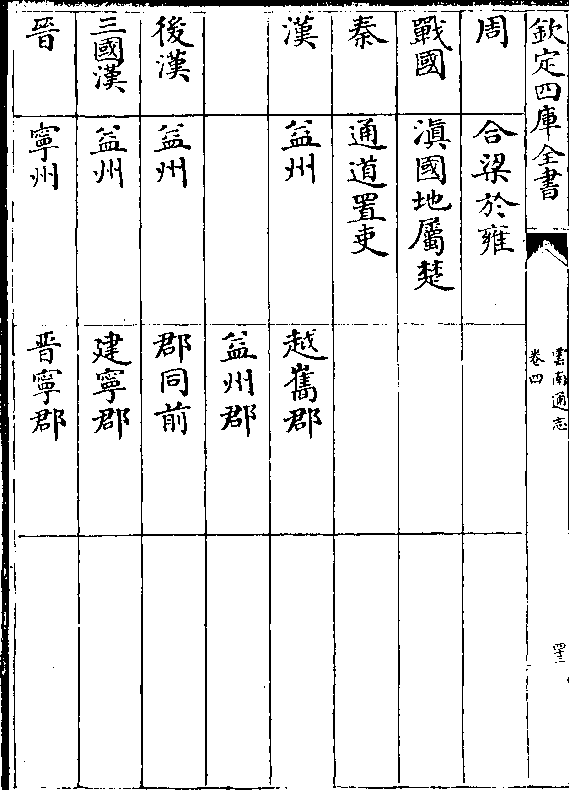 欽定四庫全書
雲南通志
卷四
四三
周 合梁於雍
戰國 滇國地屬楚
秦 通道置吏
漢 益州 越嶲郡
益州郡
後漢 益州 郡同前
三國漢 益州 建寧郡
晉 寧州 晉寧郡